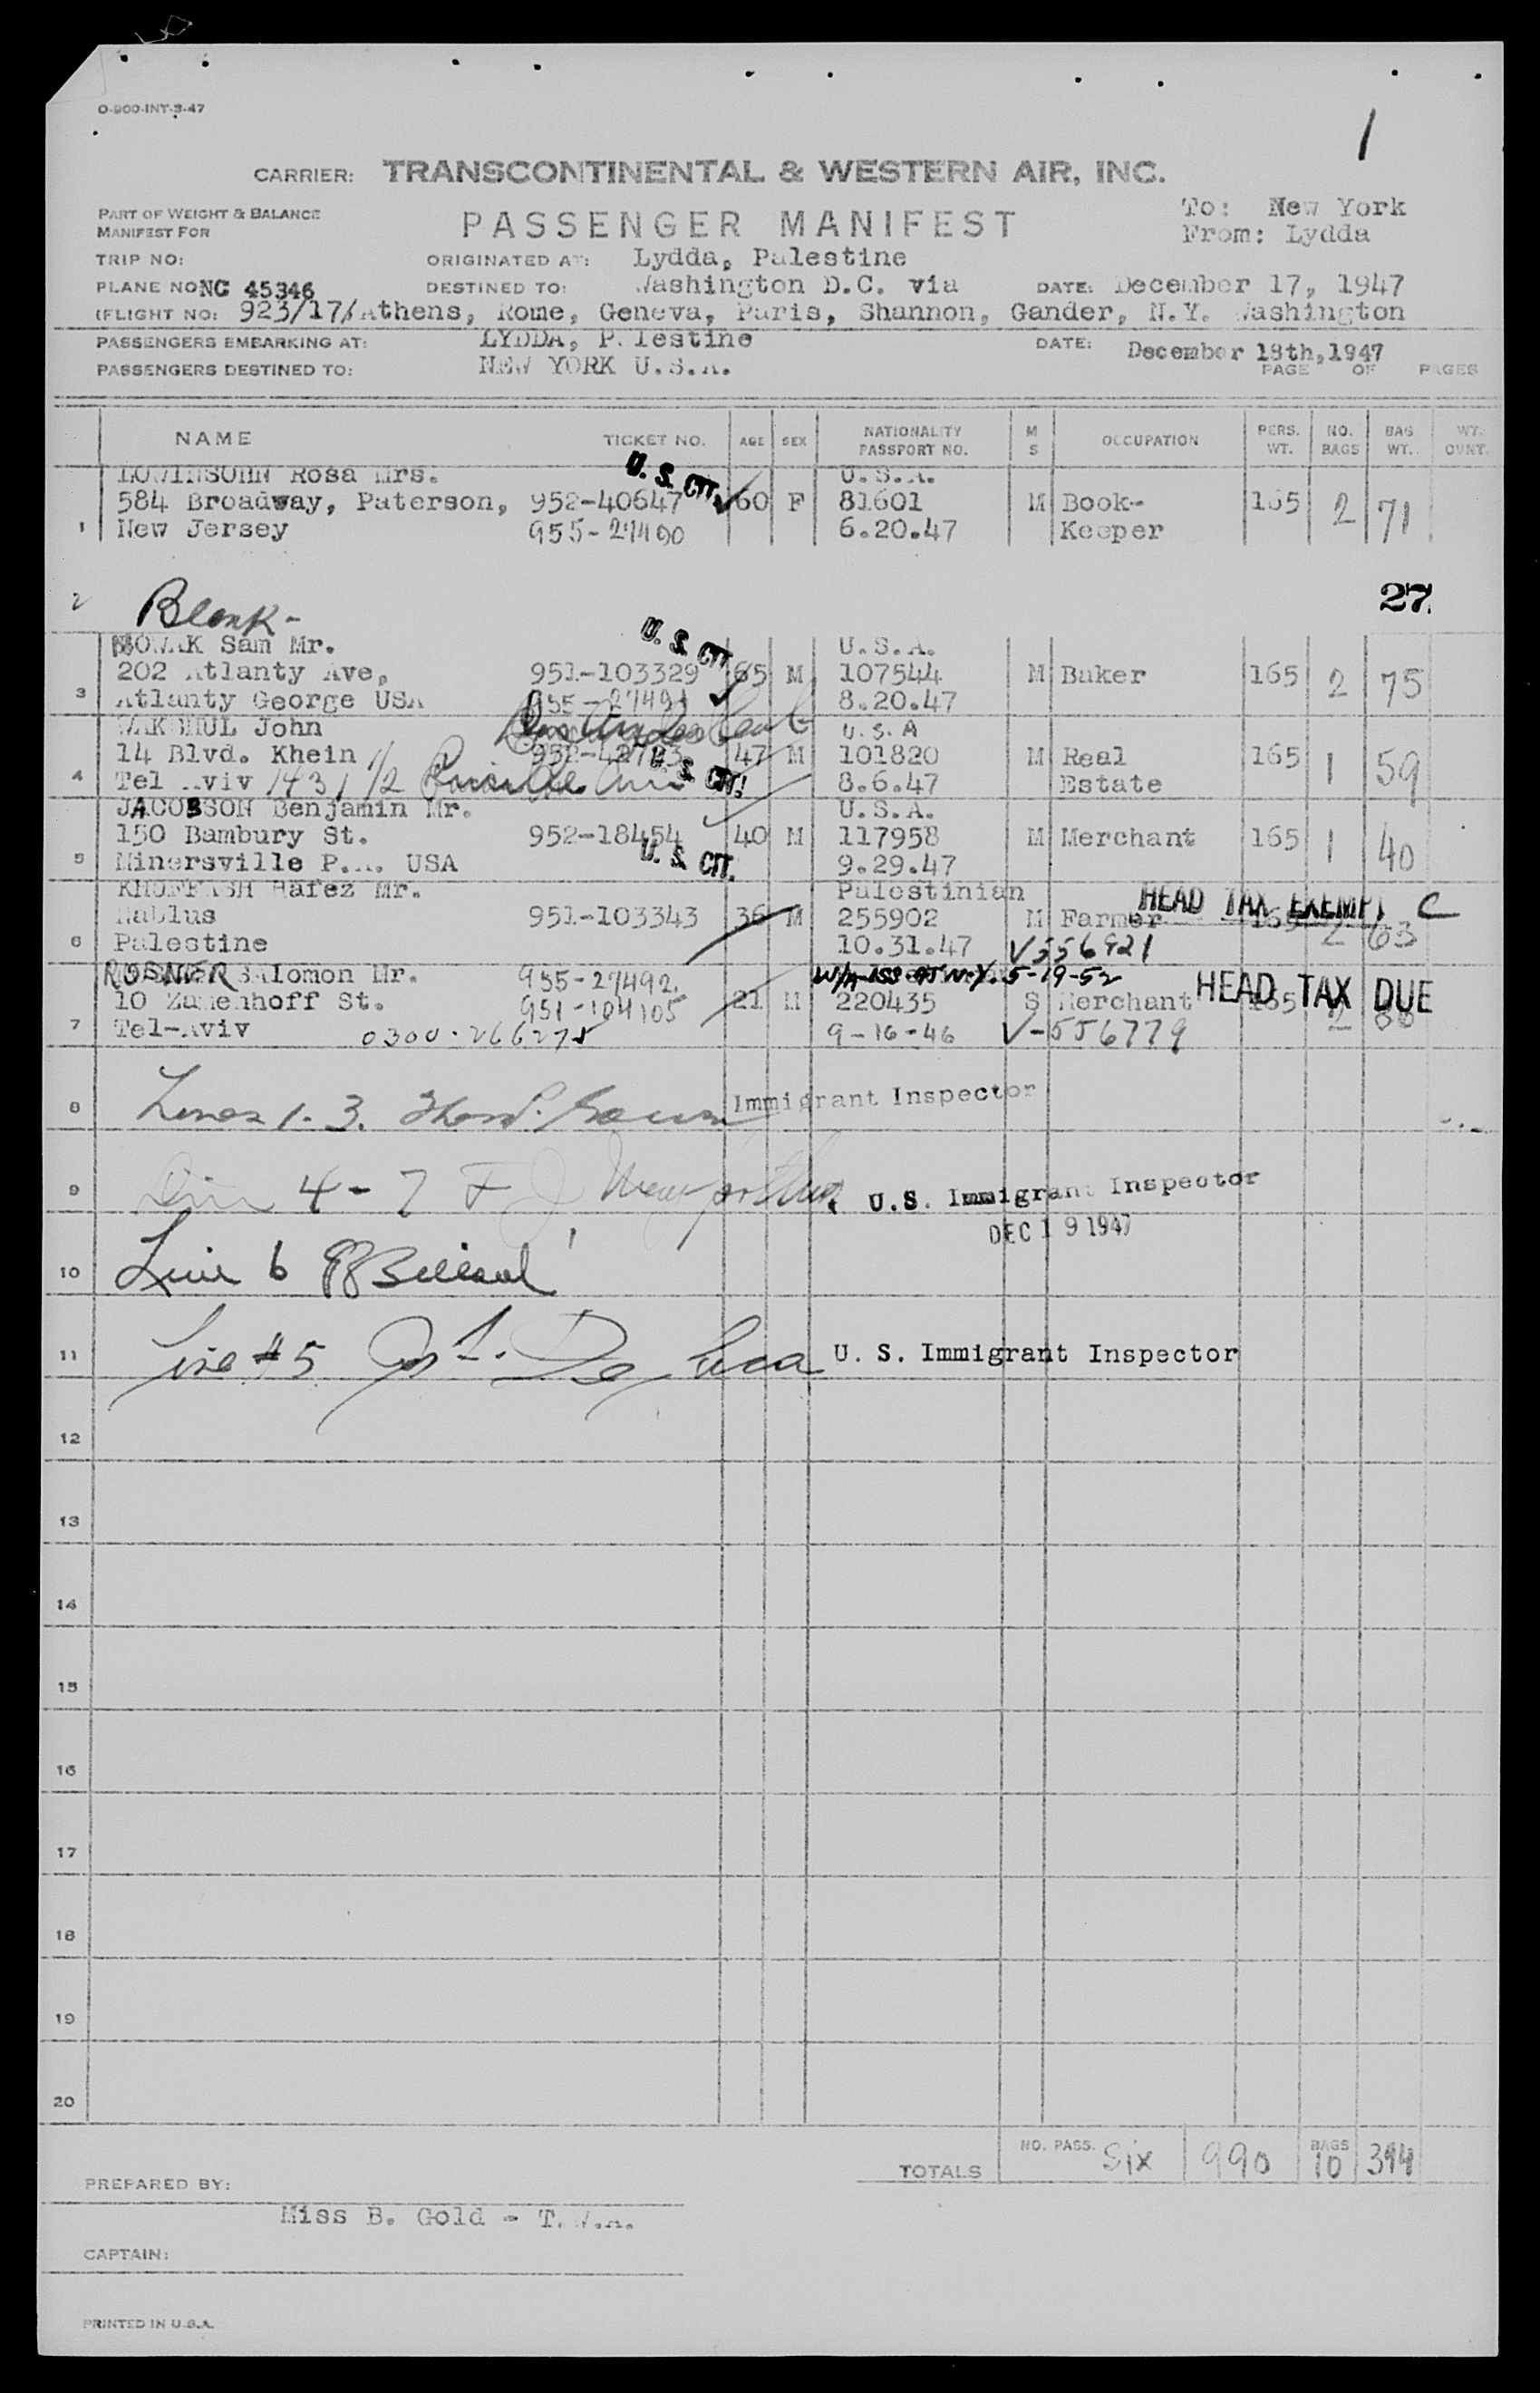 O-900-INT-3-47
1
CARRIER: TRANSCONTINENTAL & WESTERN AIR, INC.
PART OF WEIGHT & BALANCE
MANIFEST FOR
PASSENGER MANIFEST
To: New York
From: Lydda
TRIP NO:
ORIGINATED AT: Lydda, Palestine
PLANE NO NC 45346
DESTINED TO: Washington D.C. via
DATE: December 17, 1947
(FLIGHT NO: 923/17/ Athens, Rome, Geneva, Paris, Shannon, Gander, N.Y. Washington
PASSENGERS EMBARKING AT: LYDDA, Palestine
DATE: December 18th, 1947
PASSENGERS DESTINED TO: NEW YORK U.S.A.
PAGE OF PAGES
NAME TICKET NO. AGE SEX NATIONALITY PASSPORT NO. M S OCCUPATION PERS. WT. NO. BAGS BAG WT. WT. OVNT.
Rosa Mrs. U. S. CIT. U.S.A.
584 Broadway, Paterson, 952-40647 60 F 81601 M Book- 165 2 71
1 New Jersey 955-27490 6.20.47 Keeper
2 Blank- 27.
NOWAK Sam Mr. U. S. CIT. U.S.A.
202 Atlanty Ave, 951-103329 65 M 107544 M Baker 165 2 75
3 Atlanty George USA 955-27491 8.20.47
John U.S.A
14 Blvd. Khein 47 M 101820 M Real 165 1 59
4 Tel Aviv 1431 1/2 U. S. CIT. 8.6.47 Estate
JACOBSON Benjamin Mr. U.S.A.
150 Bambury St. 952-18454 40 M 117958 M Merchant 165 1 40
5 Minersville P.A. USA U. S. CIT. 9.29.47
KHUFFASH Hafez Mr. Palestinian HEAD TAX EXEMPT C
Nablus 951-103343 36 M 255902 M Farmer 165 2 63
6 Palestine 10.31.47 V556921
ROSNER Salomon Mr. 955-27492 5-19-52
10 Zamenhoff St. 951-104105 21 M 220435 S Merchant HEAD TAX DUE 165 2
7 Tel-Aviv 0300-266278 9-16-46 V-556779
8 Lines 1-3. Immigrant Inspector
9 4-7 U.S. Immigrant Inspector
DEC 19 1947
10 Line 6
11 Line #5 U. S. Immigrant Inspector
12
13
14
15
16
17
18
19
20
TOTALS NO. PASS. Six 990 BAGS 10 394
PREPARED BY:
Miss B. Gold - T.W.A.
CAPTAIN:
PRINTED IN U.S.A.